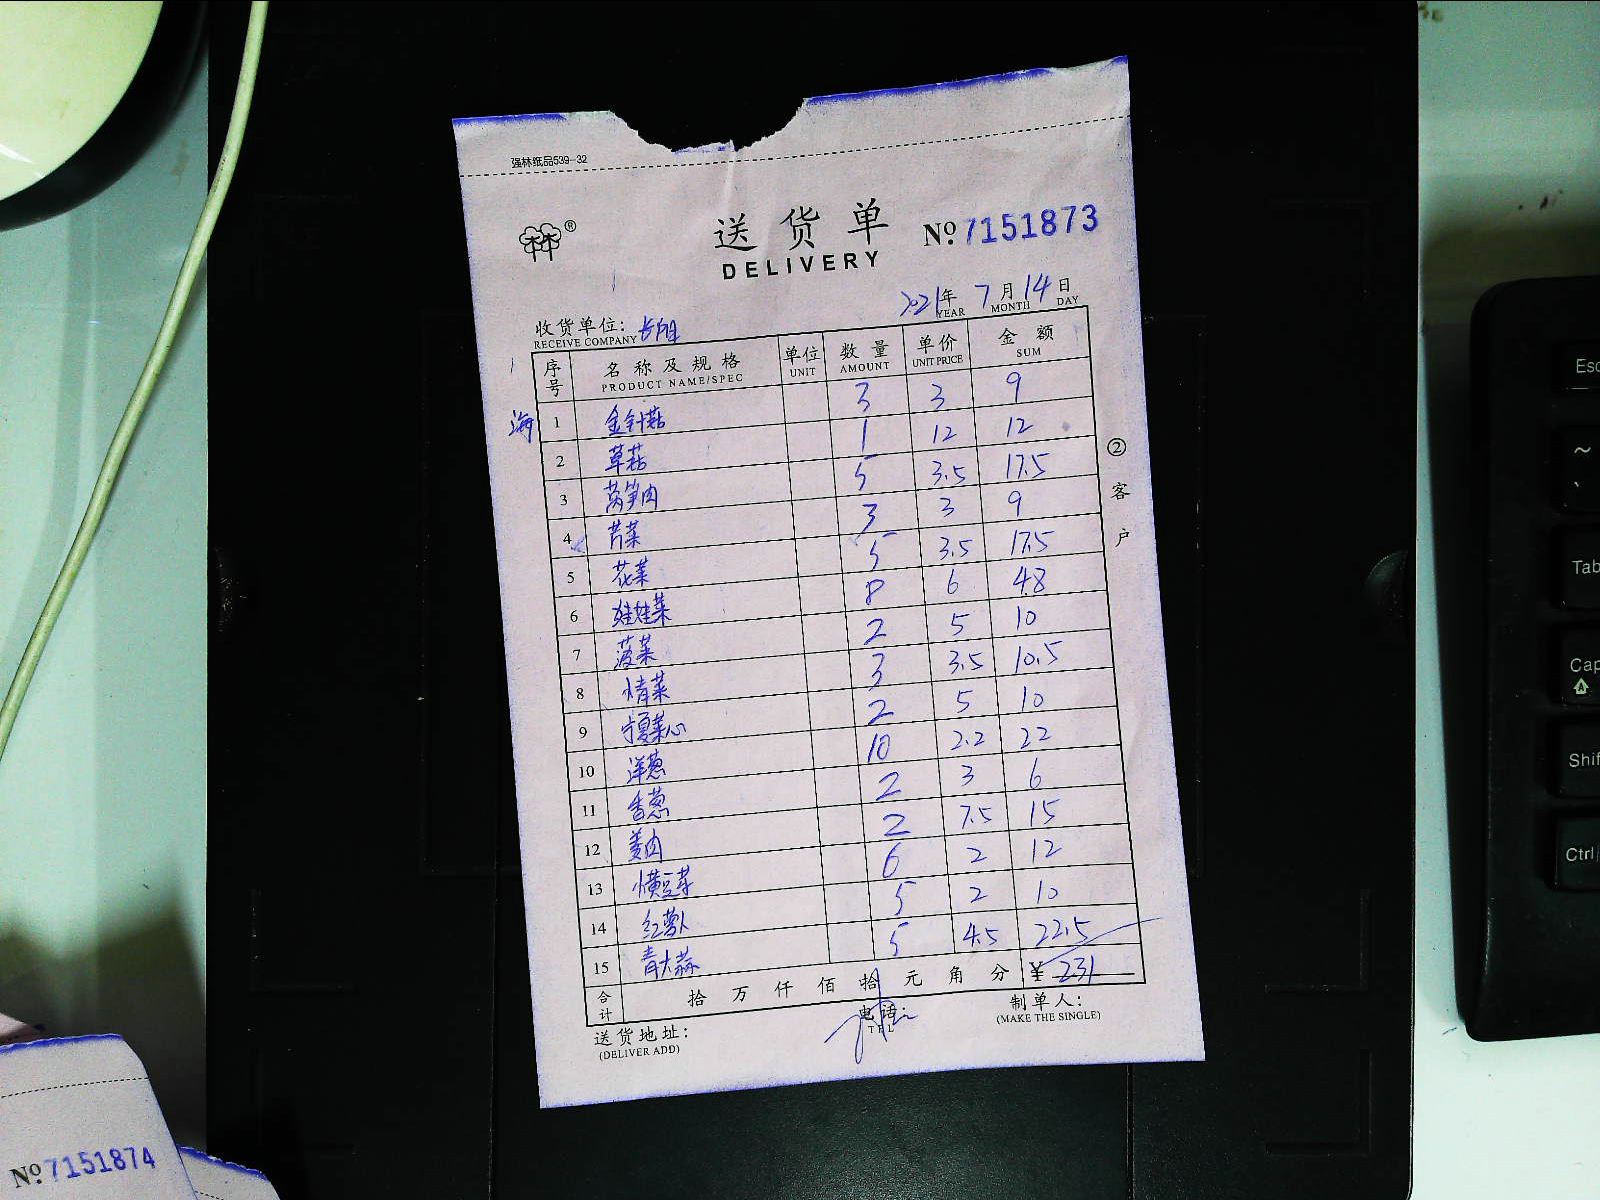 强林纸品539-32
林®
送货单 № 7151873
DELIVERY
2021年 7月 14日
YEAR MONTH DAY
收货单位:
RECEIVE COMPANY
序号 名称及规格 单位 数量 单价 金额
PRODUCT NAME/SPEC UNIT AMOUNT UNIT PRICE SUM
海 1 金针菇 3 3 9
2 草菇 1 12 12
3 莴笋肉 5 3.5 17.5
4 芹菜 3 3 9
5 花菜 5 3.5 17.5
6 娃娃菜 8 6 48
7 菠菜 2 5 10
8 情菜 3 3.5 10.5
9 宁夏菜心 2 5 10
10 洋葱 10 2.2 22
11 香葱 2 3 6
12 姜肉 2 7.5 15
13 横豆芽 6 2 12
14 红萝卜 5 2 10
15 青大蒜 5 4.5 22.5
合计 拾万仟佰拾元角分 ¥ 231
送货地址: 电话: 制单人:
(DELIVER ADD) TEL (MAKE THE SINGLE)
②客户
№ 7151874
Esc
~
`
Tab
Cap
Shif
Ctrl